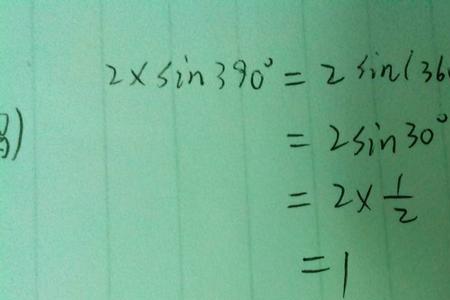 2×sin390°=2sin(36
=2sin30°
=2×1/2
=1